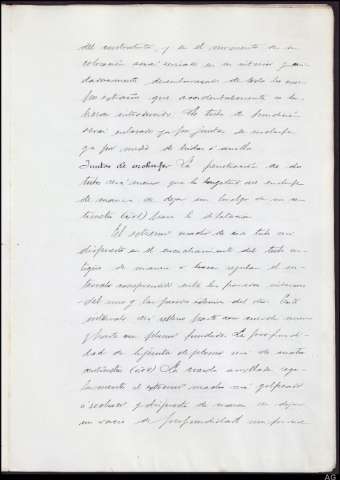 del contratista, y en el momento de su
colocación será revisado en su interior y cui-
dadosamente desembarazado de todos los cuer-
pos extraños que accidentalmente se hu-
bieran introducido. Los tubos de fundición
serán enlazados ya por juntas de enchufe
ya por medio de bridas o anillo
Juntas de enchufe. La penetración de dos
tubos será menor que la longitud del enchufe
de manera de dejar un huelgo de un cen-
tímetro (0,01) para la dilatación
El extremo macho de un tubo será
dispuesto en el encachamiento del tubo con-
tiguo de manera a hacer regular el in-
tervalo comprendido entre las paredes interiores
del uno y las paredes exterior del otro. Este
intervalo será relleno parte con cuerda
y parte con plomo fundido. La profundi-
dad de la junta de plomo será de cuatro
centímetros (0,04) La cuerda arrollada regu-
larmente al extremo macho será golpeada
o recalcada y dispuesta de manera a dejar
un vacío de profundidad